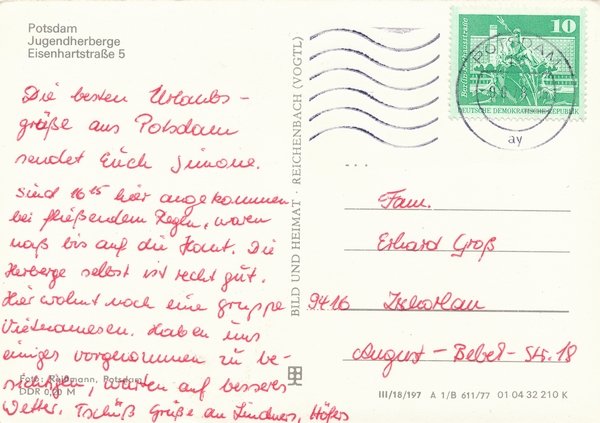 Potsdam
Jugendherberge
Eisenhartstraße 5
Die besten Urlaubs-
grüße aus Potsdam
sendet Euch Simone.
Sind 16 25 hier angekommen
bei fließendem Regen, waren
naß bis auf die Haut. Die
Herberge selbst ist recht gut.
Hier wohnt noch eine Gruppe
Vietnamesen. Haben uns
einiges vorgenommen zu be-
sichtigen, warten auf besseres
Wetter. Tschüß Grüße an Lindners, Höfers
Foto: Raßmann, Potsdam
DDR 0,20 M
BILD UND HEIMAT · REICHENBACH (VOGTL)
10
Berlin, Rathausstraße
DEUTSCHE DEMOKRATISCHE REPUBLIK
POTSDAM
ay
Fam.
Erhard Groß
9416 Zschorlau
August-Bebel-Str. 18
III/18/197 A 1/B 611/77 01 04 32 210 K